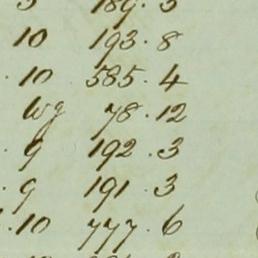 189. 3
10 193. 8
. 10 585. 4
Wg 78. 12
. 9 192. 3
. 9 191. 3
. 10 777. 6